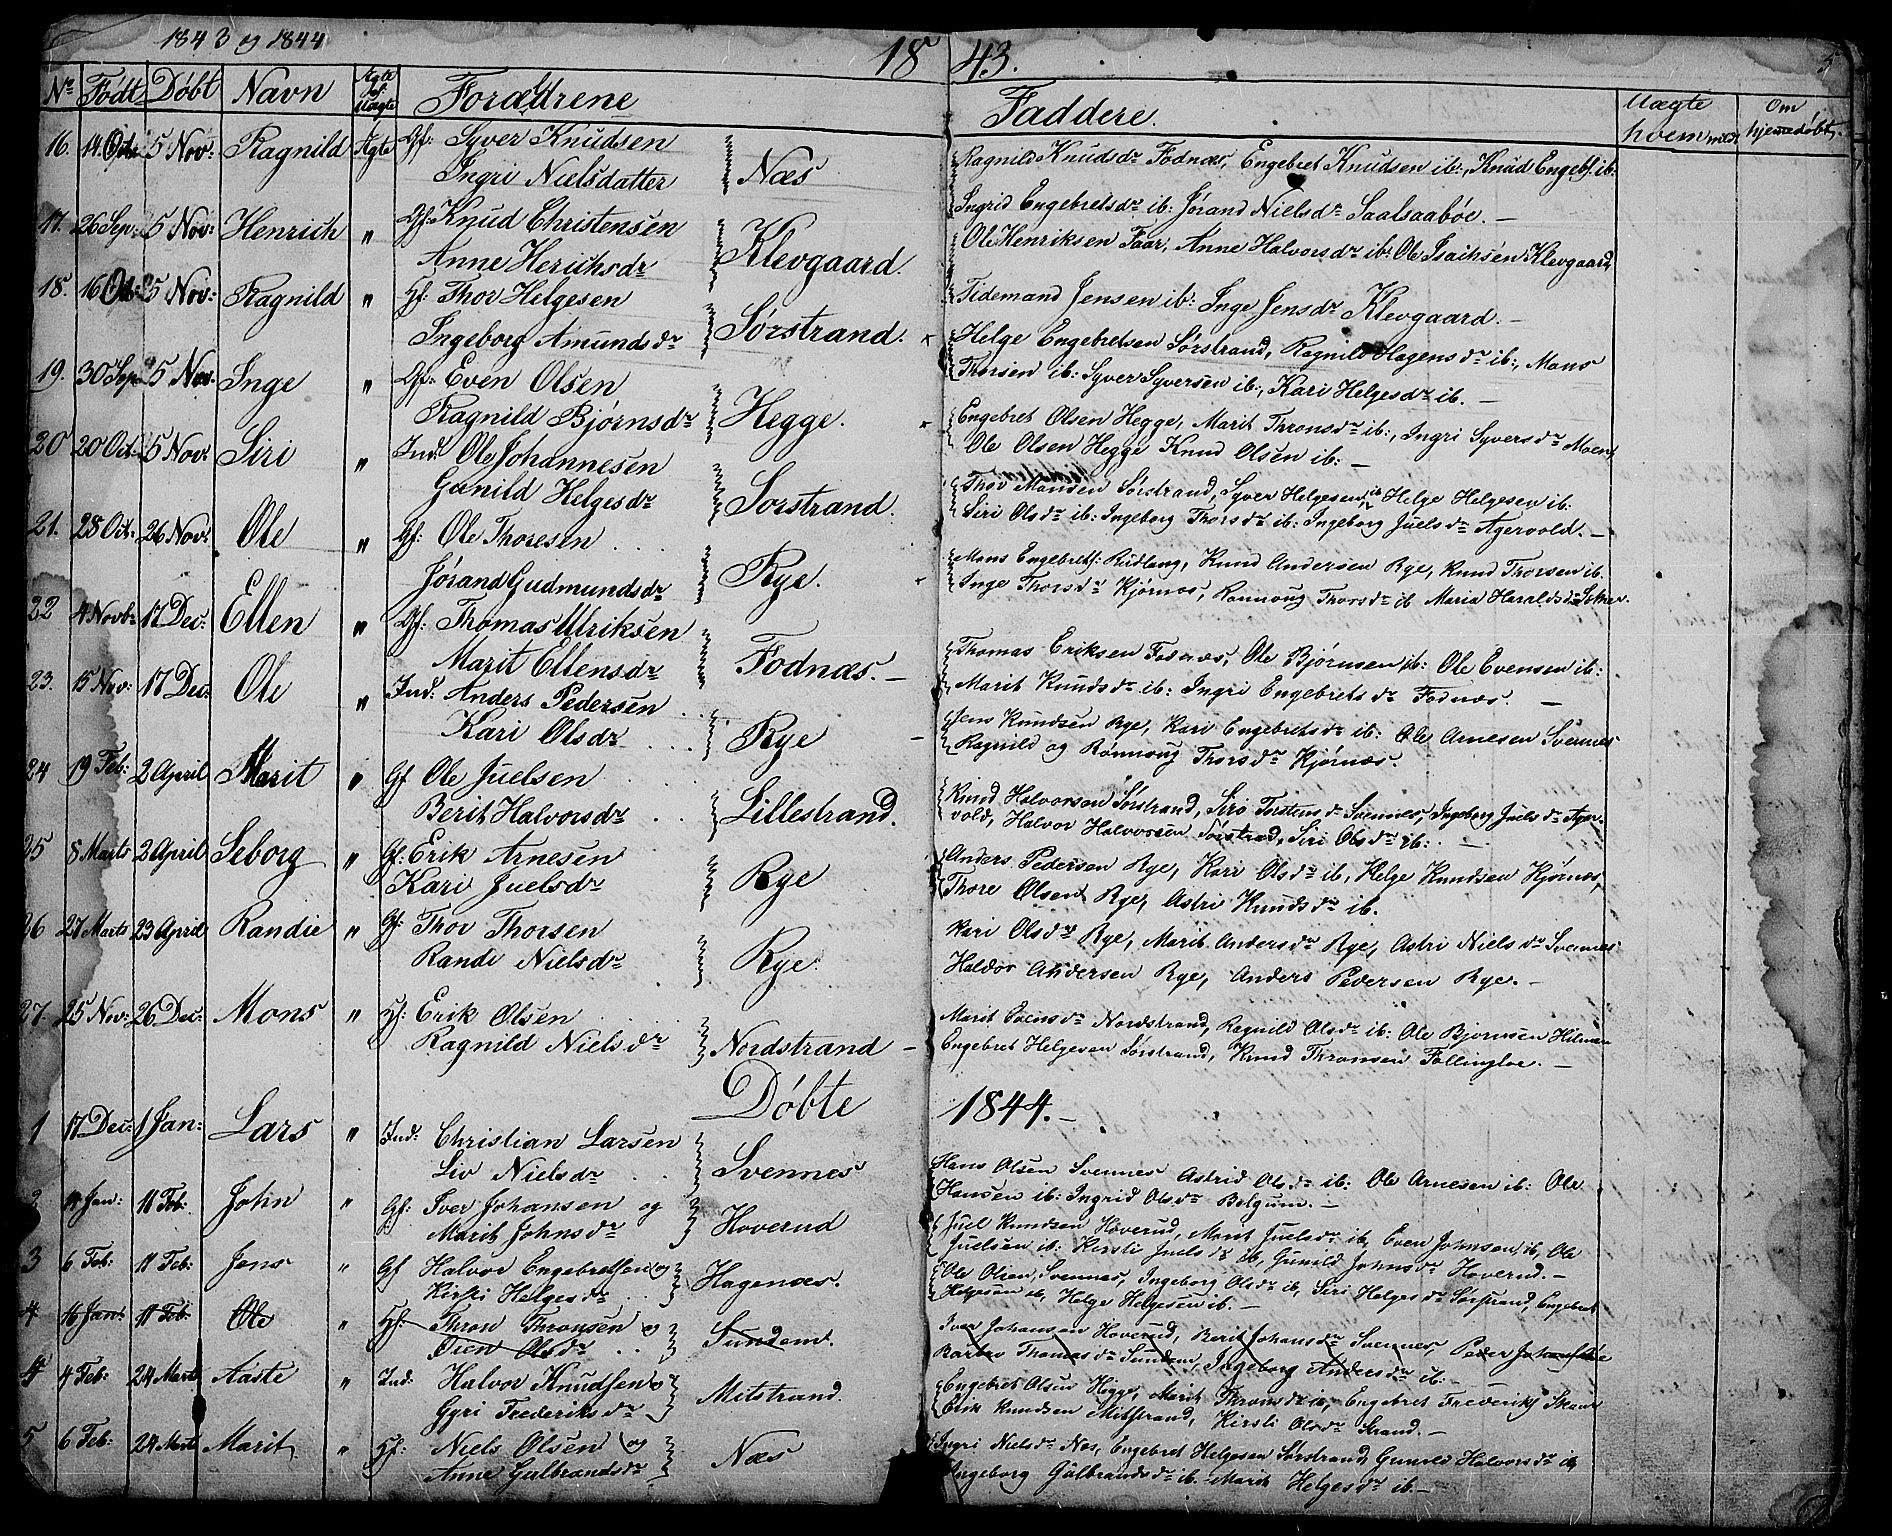 1843 og 1844
1843.
5
Nr Født Døbt Navn Ægte el. Uægte Forældrene Faddere. Uægte hvem med Om hjemedøbt.
16. 14 Oct: 5 Nov: Ragnild Ægte Gf: Syver Knudsen
Ingri Nielsdatter Næs
Ragnild Knudsdr Fodnæs, Engebret Knudsen ib:, Knud Engebs. ib:
Ingrid Engebretsdr ib: Jørand Nielsdr Saalsaabøe. —
17. 26 Sep: 5 Nov: Henrich " Gf: Knud Christensen
Anne Herichsdr Klevgaard.
Ole Henriksen Faar, Anne Halvorsdr ib: Ole Isachsen Klevgaard
Tidemand Jensen ib: Inge Jensdr Klevgaard. —
18. 16 Oct: 5 Nov: Ragnild " Gf: Thor Helgesen
Ingeborg Amundsdr Sørstrand.
Helge Engebretsen Sørstrand, Ragnild Hagensdr ib:, Mons
Thorsen ib: Syver Syversen ib:, Kari Helgesdr ib. —
19. 30 Sep 5 Nov: Inge " Gf: Even Olsen
Ragnild Bjørnsdr Hegge.
Engebret Olsen Hegge, Marit Thronsdr ib:, Ingri Syversdr Moen,
Ole Olsen Hegge Knud Olsen ib: —
20 20 Oct: 5 Nov: Siri " Ind: Ole Johannesen
Gunild Helgesdr Sorstrand.
Thor Monsen Sørstrand, Syver Helgesen ib Helge Helgesen ib:
Siri Olsdr ib: Ingeborg Thorsdr ib: Ingeborg Juelsdr Agervold. —
21. 28 Oct: 26 Nov: Ole " Gf: Ole Thoresen
Jørand Gudmundsdr Rye.
Mons Engebrets: Rudlang, Knud Andersen Rye, Knud Thorsen ib.
Inge Thorsdr Kjørnæs, Rønnoug Thorsdr ib Maria Haraldsdr
22 4 Novb: 17 Dec: Ellen " Gf: Thomas Ulriksen
Marit Ellensdr Fodnæs. —
Thomas Eriksen Fodnæs, Ole Bjørnsen ib: Ole Evensen ib:
Marit Knudsdr ib: Ingri Engebretsdr Fodnæs. —
23. 15 Nov: 17 Dec: Ole " Ind: Anders Pedersen
Kari Olsdr Rye
Jens Knudsen Rye, Kari Engebretsdr ib: Ole Arnesen Svennes
Ragnild og Rønnoug Thorsdr Kjørnæs.
24 19 Feb: 2 April Marit " Gf Ole Juelsen
Berit Halvorsdr Lillestrand.
Knud Halvorsen Sørstrand, Siro Torstensdr Svennes, Ingeborg Juelsdr Ager-
vold, Halvor Halvorsen Sørstrad, Siri Olsdr ib: —
25 8 Marts 2 April Seborg " Gf: Erik Arnesen
Kari Juelsdr Rye
Anders Pedersen Rye, Kari Olsdr ib, Helge Knudsen Kjørnæs,
Thore Olsen Rye, Astri Knudsdr ib.
26 27 Marts 23 April Randie " Gf: Thor Thorsen
Randi Nielsdr Rye.
Kari Olsdr Rye, Marit Andersdr Rye, Astri Nielsdr Svennes
Haldor Andersen Rye, Anders Pedersen Rye. —
27. 25 Nov: 26 Dec: Mons " Gf: Erik Olsen
Ragnild Nielsdr Nordstrand —
Marit Evensdr Nordstrand, Ragnild Olsdr ib: Ole Bjornsen
Engebret Helgesen Sørstrand, Knud Thronsen Follingloe. —
Døbte 1844. —
1 17 Dec: 1 Jan: Lars " Ind: Christian Larsen
Liv Nielsdr Svennes
Hans Olsen Svennes Astrid Olsdr ib: Ole Arnesen ib: Ole
Hansen ib: Ingrid Olsdr Belgum. —
2 14 Jan: 11 Feb: John " Gf: Iver Johansen og
Marit Johnsdr Hoverud
Juel Knudsen Hoverud, Marit Juelsdr ib, Even Johnsen ib, Ole
Juelsen ib: Kirsti Juelsdr ib, Gunild Johnsdr Hoverud. —
3 6 Feb: 11 Feb: Jens " Gf Halvor Engebretsen og
Kirsti Helgesdr Hagenæs.
Ole Olsen, Svennes, Ingeborg Olsdr ib, Siri Helgesdr Sørstrand, Engebret
Helgesen ib, Helge Helgesen ib: —
4 16 Jan: 11 Feb: Ole " Gf: Thron Thronsen og
Olsdr Sundem.
Iver Johansen Hoverud, Berit Johansdr Svennes, Peder
Thomasdr Sundem, Ingeborg Andersdr ib:
4 4 Feb: 24 Marts Aaste " Ind: Halvor Knudsen og
Gyri Frederiksdr Mitstrand.
Engebret Olsen Hegge, Marit Thronsdr ib, Engebret Frederiks
Erik Knudsen Mitstrand, Kirsti Olsdr Strand. —
5 6 Feb: 24 Marts Marit " Gf: Niels Olsen og
Anne Gulbrandsdr Næs
Ingri Nielsdr Næs, Engebret Helgesen Sørstrand, Gunild Halvorsdr ib,
Ingeborg Gulbrandsdr ib. Marit Helgesdr ib. —